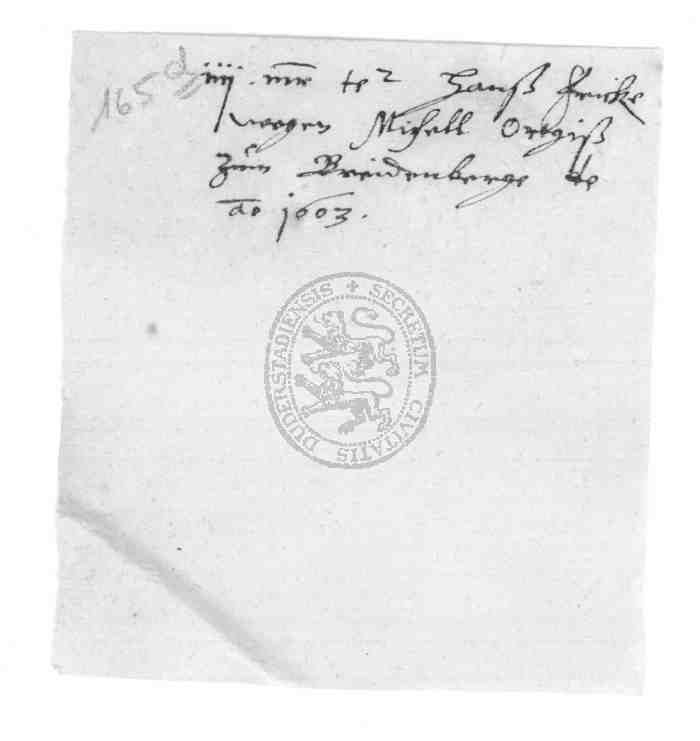 165
iiij mr te Hanß Fricke
wegen Michell Ortgiß
zum Breidenberge de
ao 1603.
SECRETUM CIVITATIS DUDERSTADIENSIS